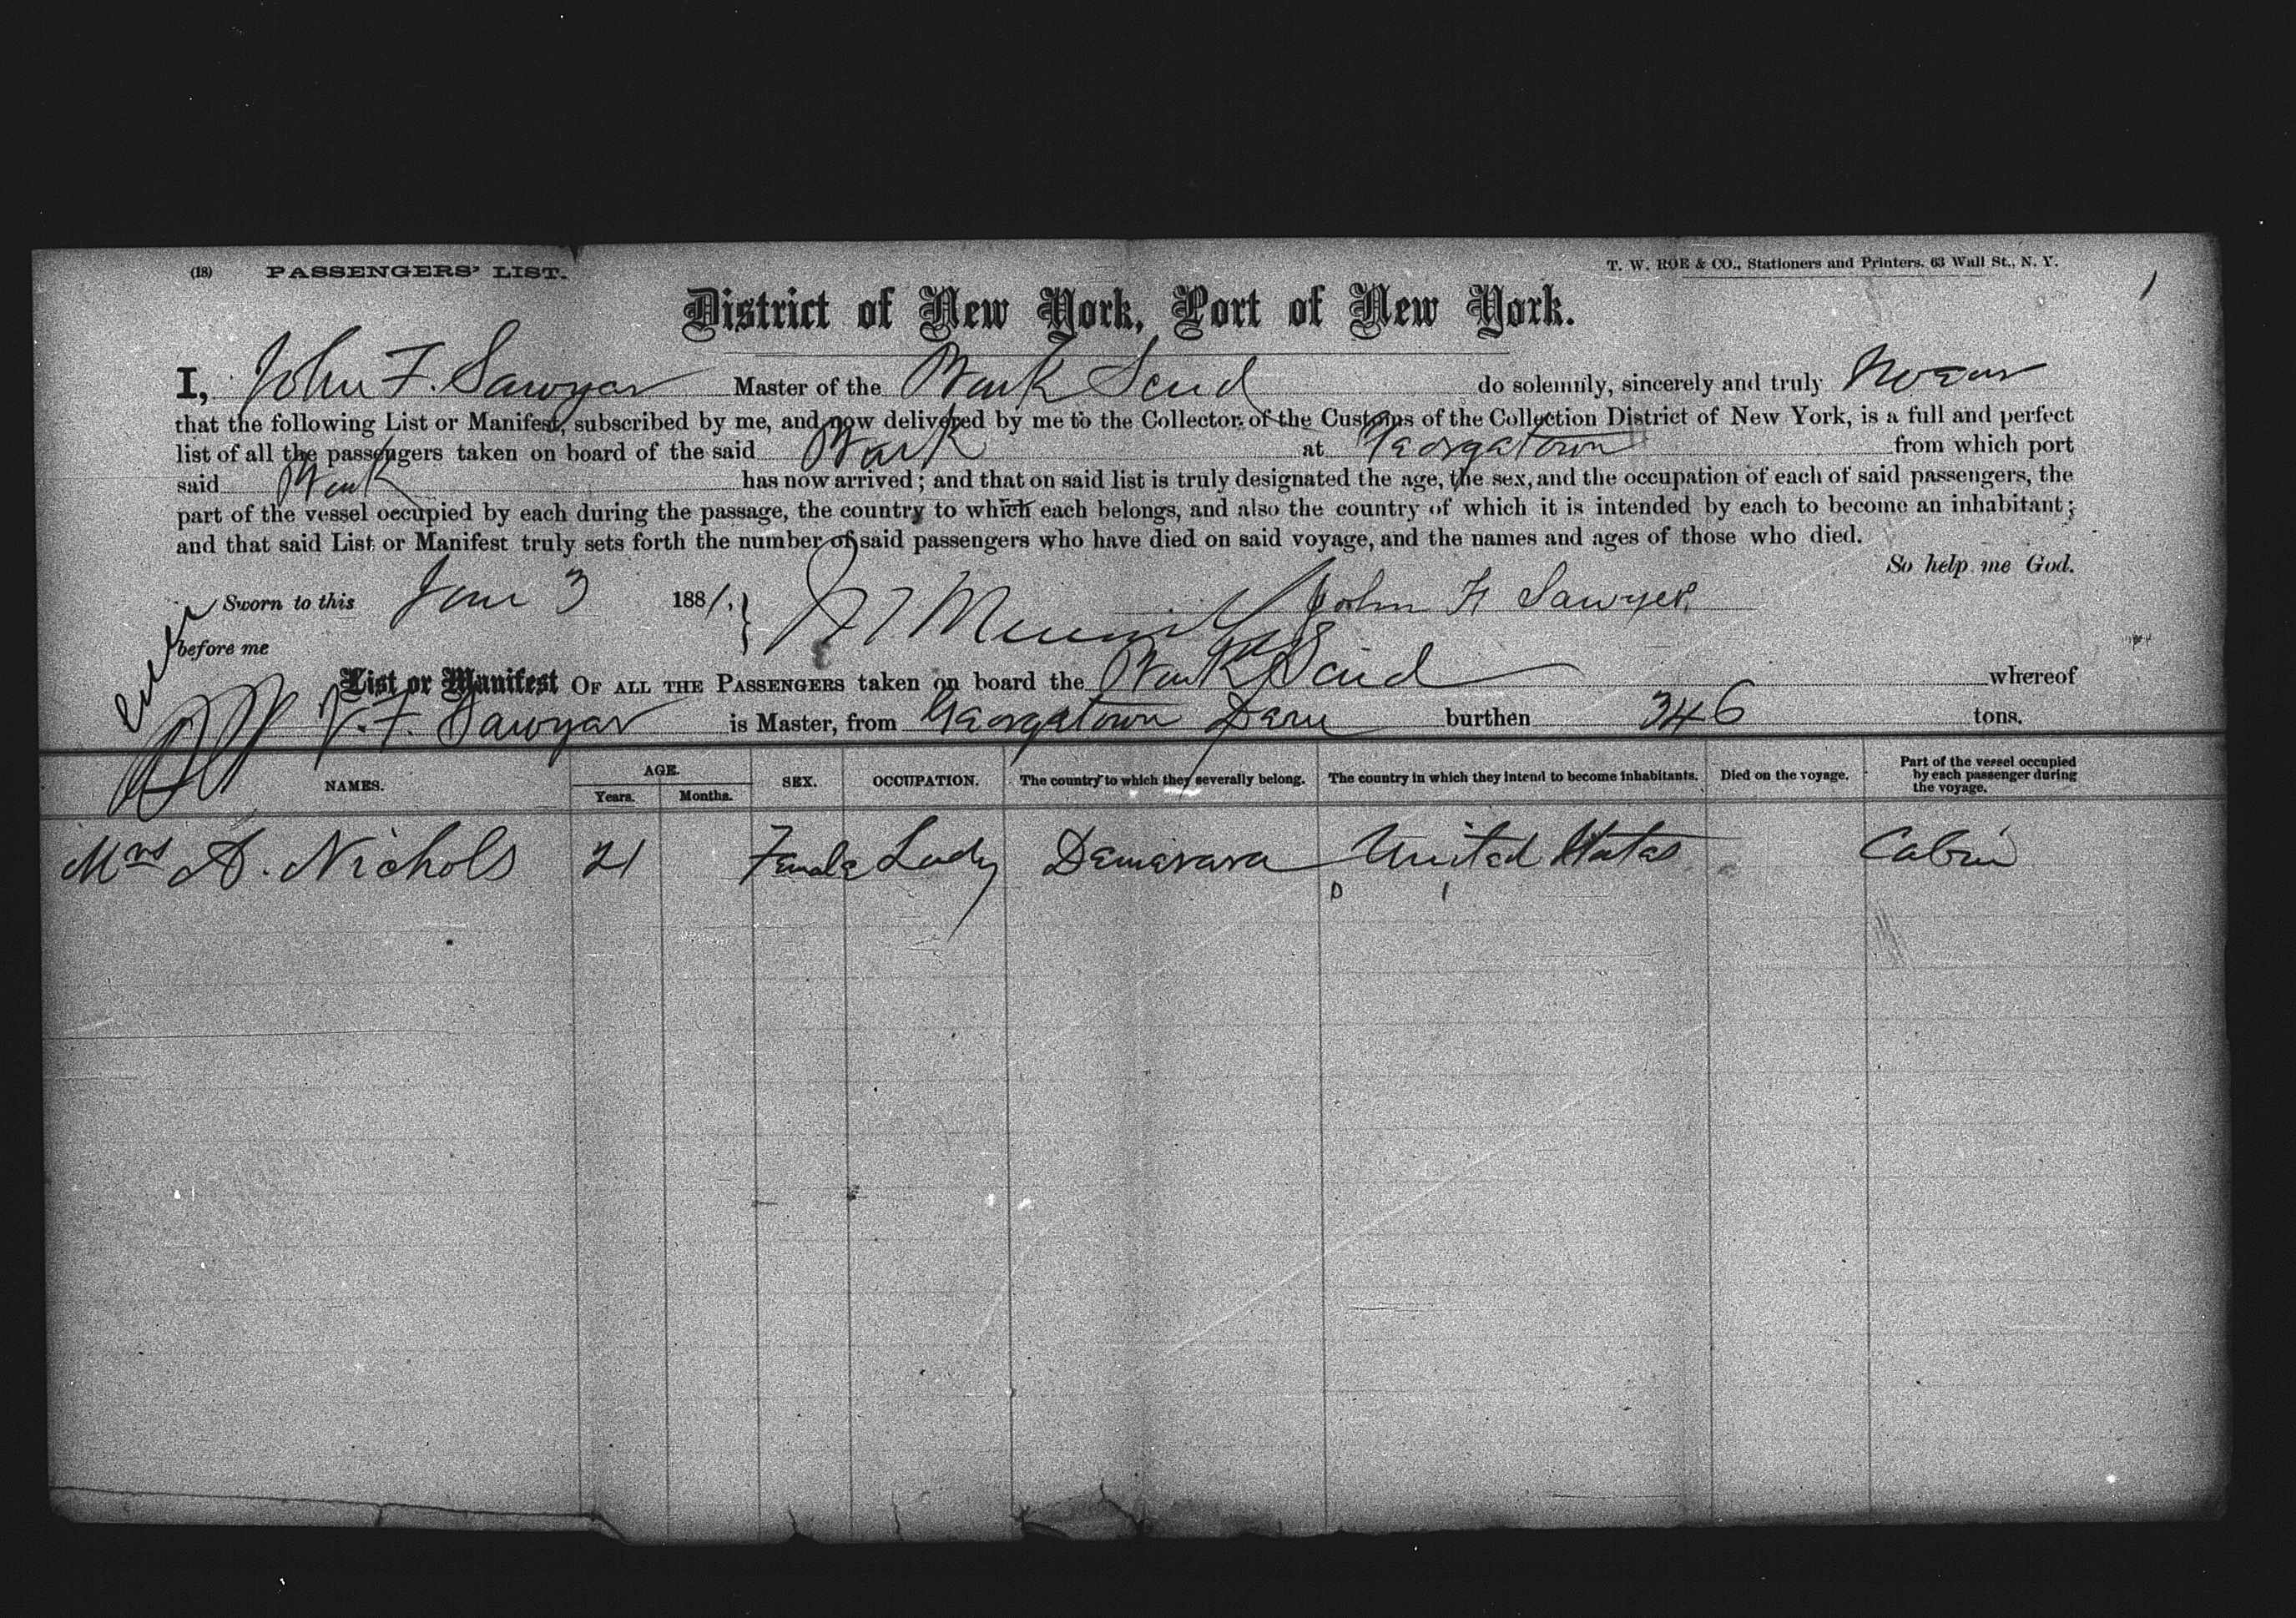 (18) PASSENGERS' LIST.
T. W. ROE & CO., Stationers and Printers. 63 Wall St., N. Y.
District of New York, Port of New York.
I, John F. Sawyer Master of the Bark Scud do solemnly, sincerely and truly swear
that the following List or Manifest, subscribed by me, and now delivered by me to the Collector of the Customs of the Collection District of New York, is a full and perfect
list of all the passengers taken on board of the said Bark at Georgetown from which port
said Bark has now arrived; and that on said list is truly designated the age, the sex, and the occupation of each of said passengers, the
part of the vessel occupied by each during the passage, the country to which each belongs, and also the country of which it is intended by each to become an inhabitant;
and that said List or Manifest truly sets forth the number of said passengers who have died on said voyage, and the names and ages of those who died.
So help me God.
Sworn to this 3 1881, John F Sawyer
before me
List or Manifest OF ALL THE PASSENGERS taken on board the Bark Scud whereof
J. F. Sawyer is Master, from Georgetown Dem burthen 346 tons.
NAMES. AGE. Years. Months. SEX. OCCUPATION. The country to which they severally belong. The country in which they intend to become inhabitants. Died on the voyage. Part of the vessel occupied by each passenger during the voyage.
Mrs A. Nichols 21 Female Lady Demerara United States Cabin